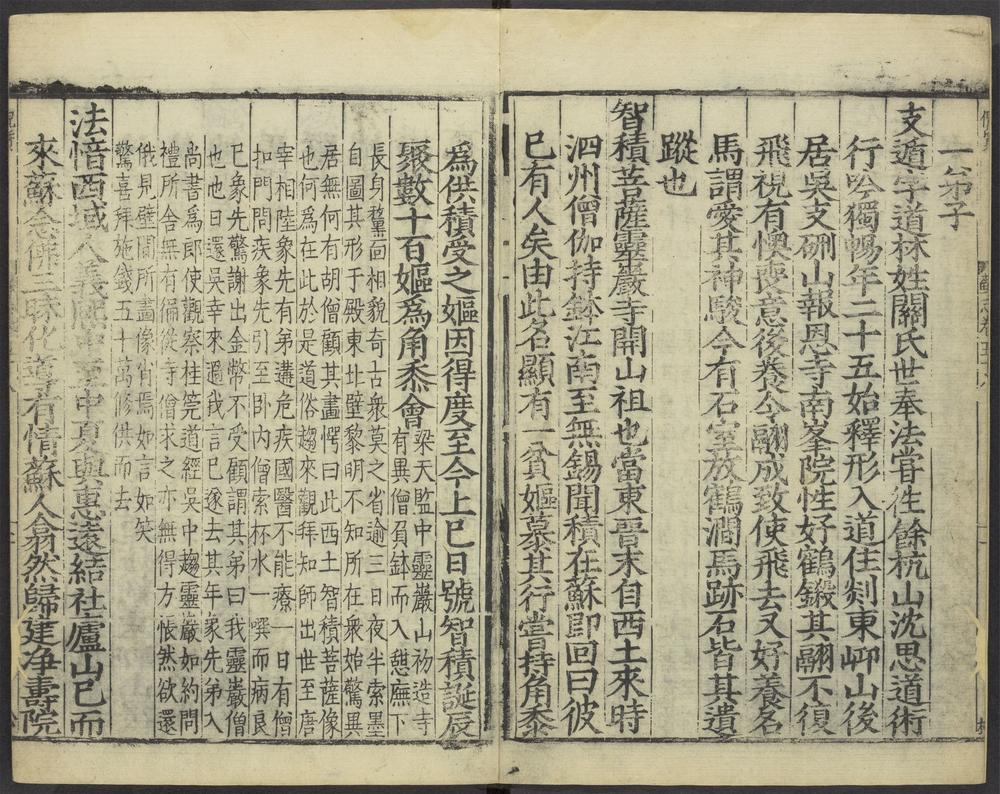 一弟子
支遁字道林姓關氏世奉法嘗徃餘杭山沈思道術
行吟獨暢年二十五始釋形入道住剡東岬山後
居吳支硎山報恩寺南峯院性好鶴鎩其翮不復
飛視有懊喪意後養令翮成致使飛去又好養名
馬謂愛其神駿今有石室放鶴澗馬跡石皆其遺
蹤也
智積菩薩靈巖寺開山祖也當東晉末自西土來時
泗州僧伽持鉢江南至無錫聞積在蘇即回曰彼
已有人矣由此名顯有一貧嫗慕其行嘗持角黍
爲供積受之嫗因得度至今上巳日號智積誕辰
聚數十百嫗爲角黍會
梁天監中靈巖山初造寺
有異僧負鉢而入憩廡下
長身黧面相貌奇古衆莫之省逾三日夜半索墨
自圖其形于殿東北壁黎明不知所在衆始驚異
居無何有胡僧顧其畫愕曰此西土智積菩薩像
也何爲在此於是道俗趨來觀拜知師出世至唐
宰相陸象先有弟遘危疾國醫不能療一日有僧
扣門問疾象先引至卧内僧索杯水一噀而病良
已象先驚謝出金幣不受顧謂其弟曰我靈巖僧
也他日還吳幸來過我言已遂去其年象先弟入
尚書爲郎使觀察桂筦道經吳中趨靈巖如約問
禮所舍無有徧從寺僧求之亦無得方悵然欲還
俄見壁間所畫像肖焉如言如笑
驚喜拜施錢五十萬修供而去
法愔西域人義熙中至中夏與惠遠結社廬山已而
來蘇念佛三昧化導有情蘇人翕然歸建净壽院